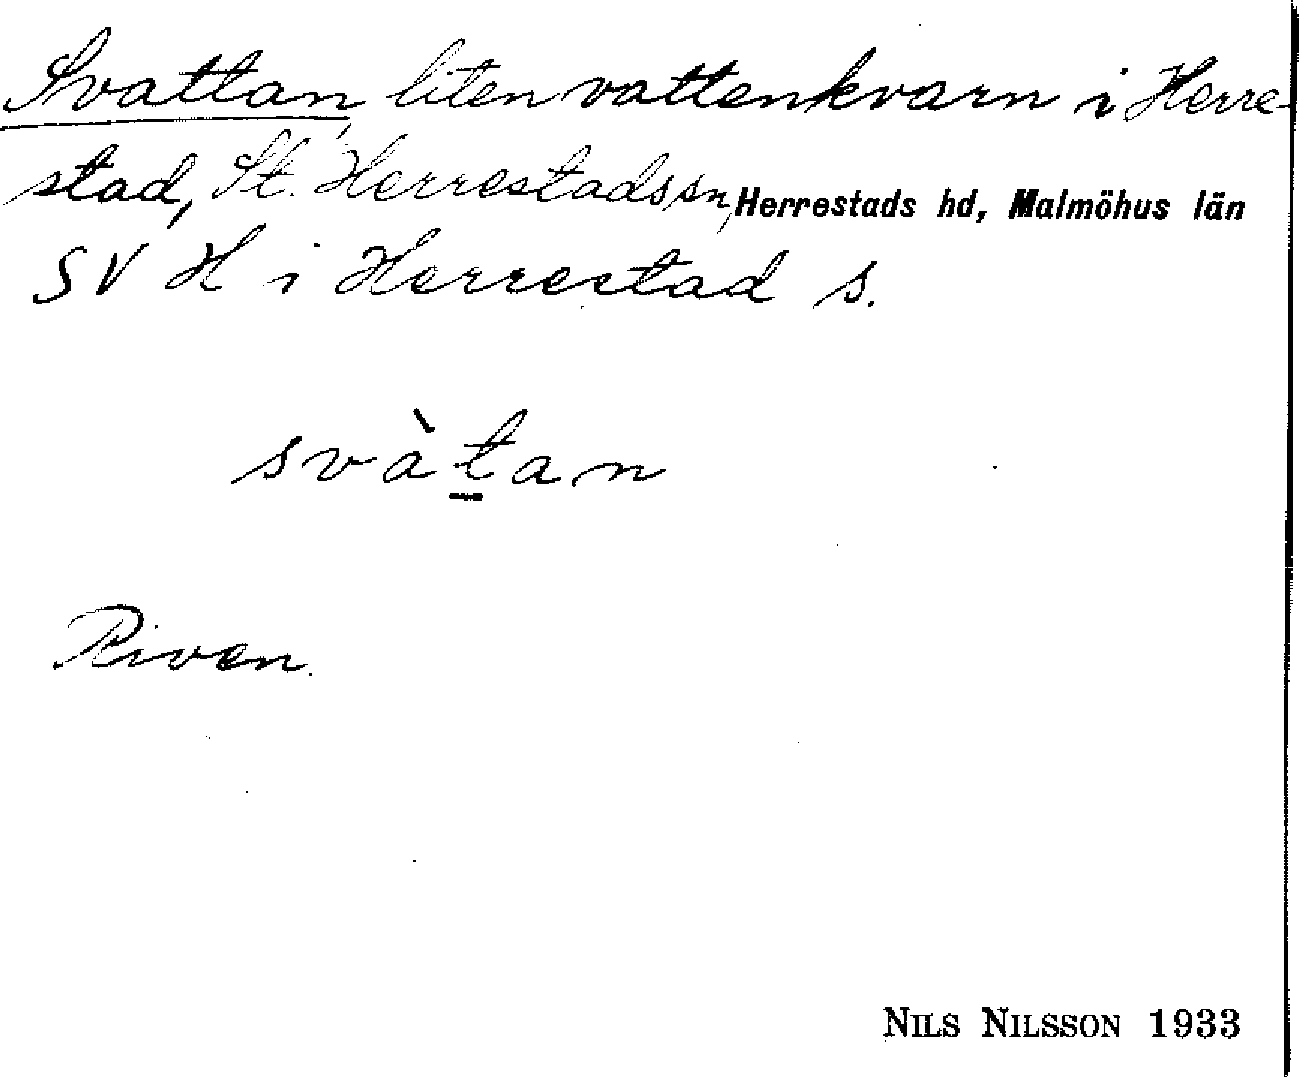 Svattan, liten vattenkvarn i Herre-
stad, St. Herrestads sn, Herrestads hd, Malmöhus län
SV H i Herrestad s.
svàt̲an
Riven.
NILS NILSSON 1933